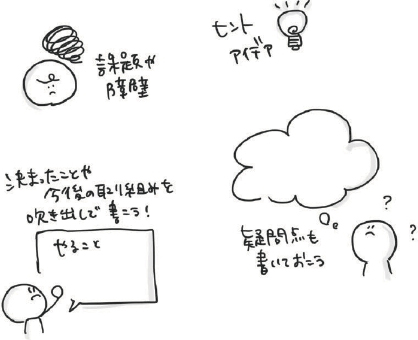 課題や
障壁
ヒント
アイデア
決まったことや
今後の取り組みを
吹き出しで書こう!
やること
?
?
疑問点も
書いておこう